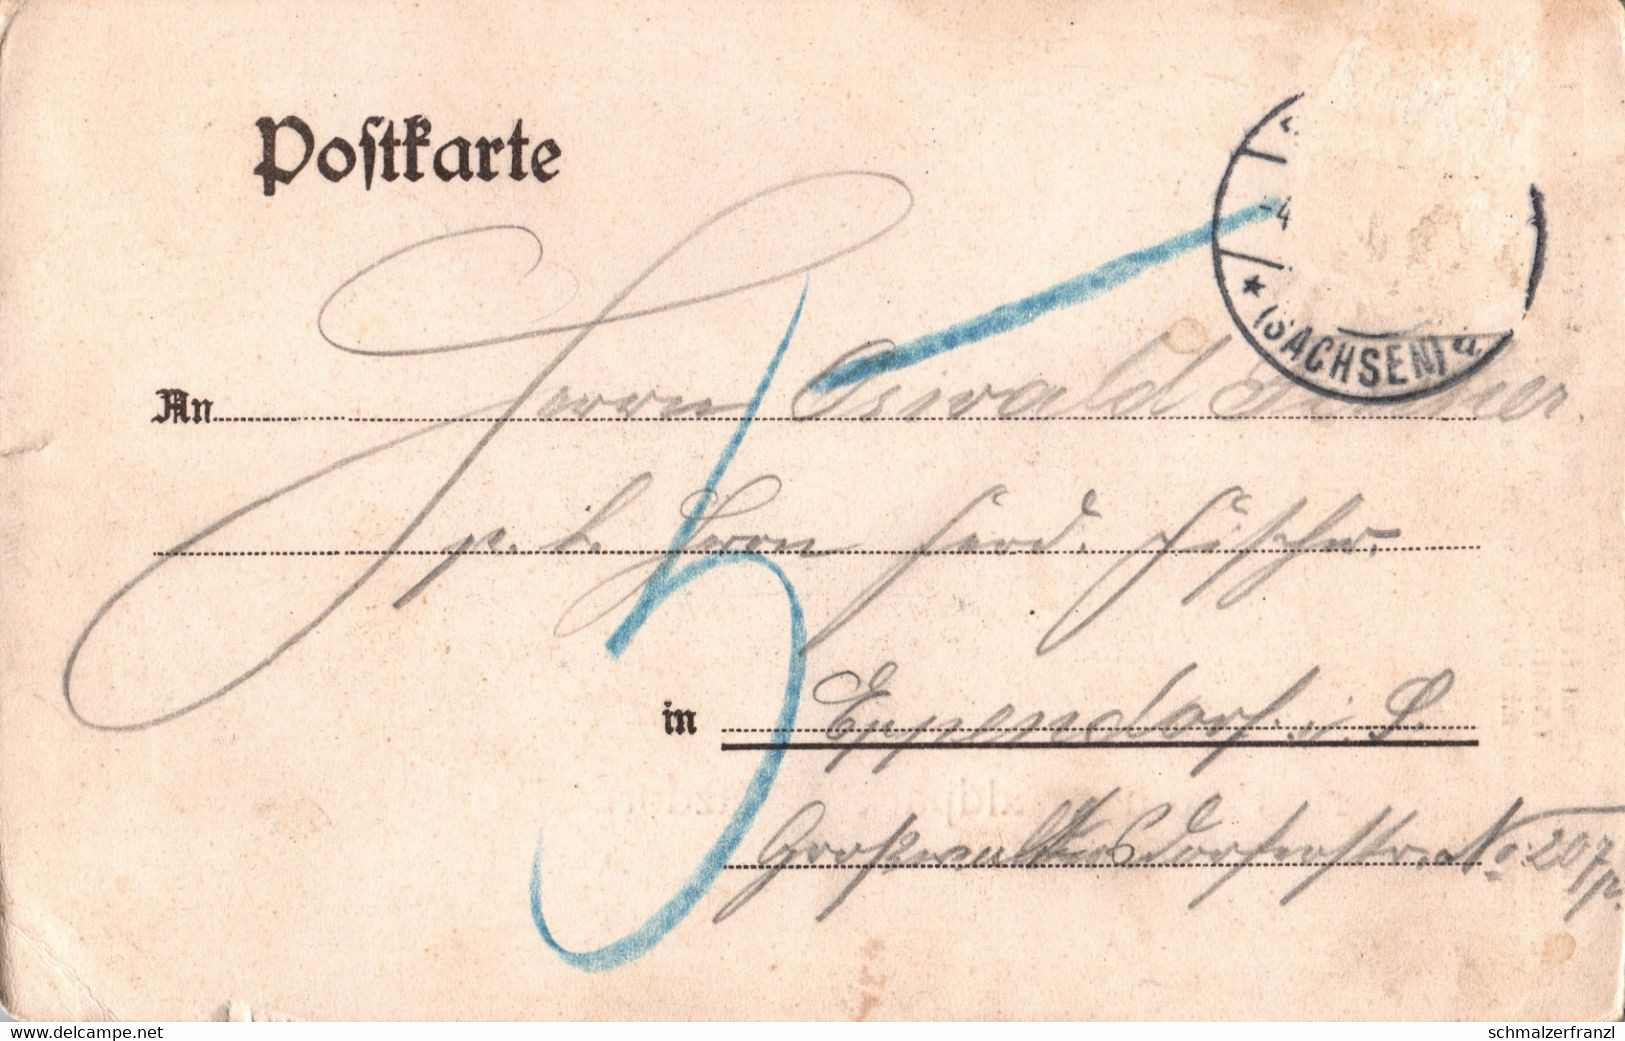 Postkarte
-4
* (SACHSEN) a
An Herrn Oswald
p. A. Herrn Ferd. Fischer.
in Eppendorf. i. S.
Großwaltersdorferstr. No. 207
5
www.delcampe.net
schmalzerfranzl